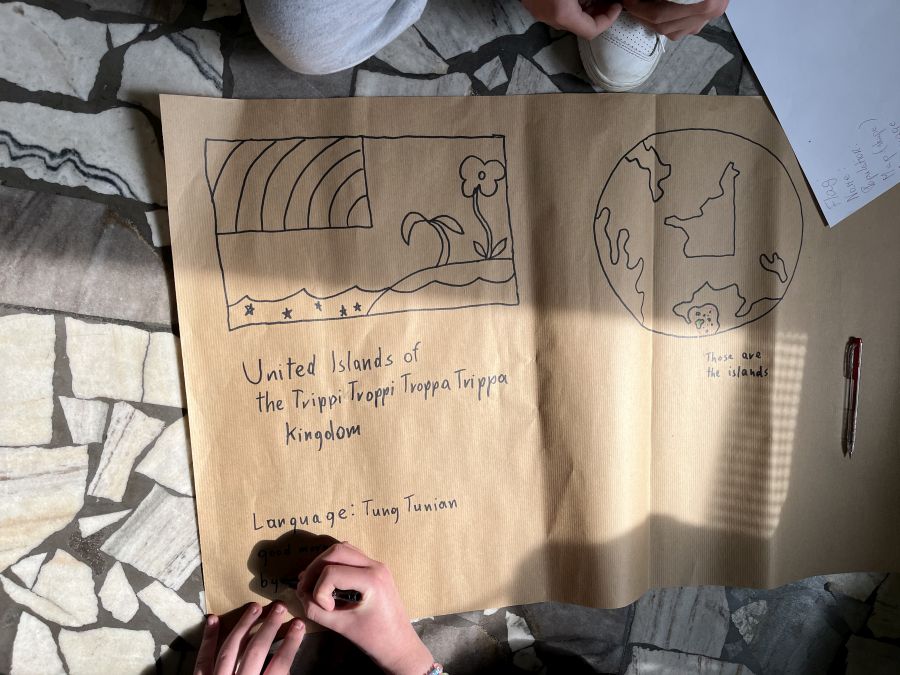 United Islands of
the Trippi Troppi Troppa Trippa
Kingdom
Language: Tung Tunian
good
by
Those are
the islands
Flag
Name
Population
Map (shape)